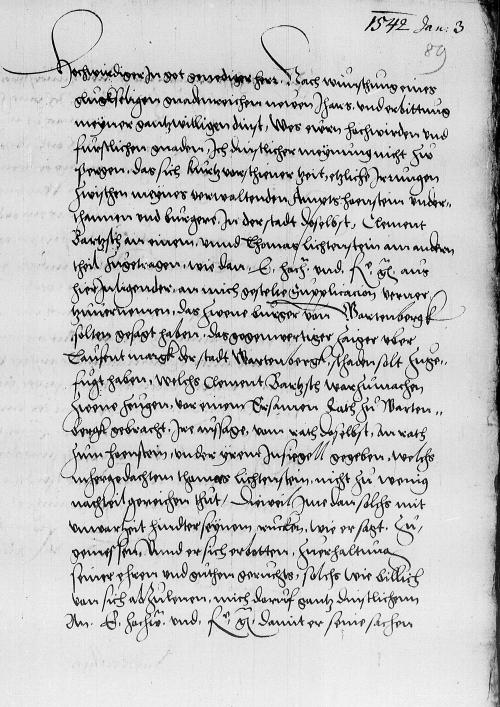 1542 Jan: 3
89
Hochwirdiger In got genediger her Nach wunschung eines
glugkseligen gnadenreichen neuen Jhars, und erbittung
meyner gantzwilligen dinst, Wes euern hochwirden und
furstlichen gnaden, Ich dinstlicher meynung nicht zu
bergen, das sich kurtz vorschener Zeit, etzliche Irrungen
zwischen meynes verwaltenden Ampts hoenstein under-
thannen und burgere, In der stadt doselbst, Clement
Bartzsch an einem, unnd Thomas lichtenstein am andern
theil zugetragen, wie dan E. hoch. und. F. g. aus
hier Inligender, an mich gestelte Supplication verner
zuvernemen, das zwene burger von Wartenbergk
solten gesagt haben, das gegenwertiger zaiger uber
Tausent margk der stadt Wartenbergk, schaden solt zuge-
fugt haben, welchs Clement Bartzsch war zumachen
zwene zeugen, vor einem Ersamen Rath zu Warten-
bergk gebracht, Ire aussage, vom rath doselbst, an rath
zum hoenstein, under yrem Insiegell gegeben, welchs
mhergedachten thomas lichtenstein, nicht zu wenig
nachteil gereichen thut, Dieweil Ime dan solchs mit
unwarheit hinder seynem, rucken, wie er sagt, zu-
gemessen, Unnd er sich erbotten, zu erhaltung
seiner ehren und guthen geruchts, solchs wie billich
von sich abzulenen, mich daruf gantz dinstlichenn
An. E. hochw. und. F. g. damit er seine sachen